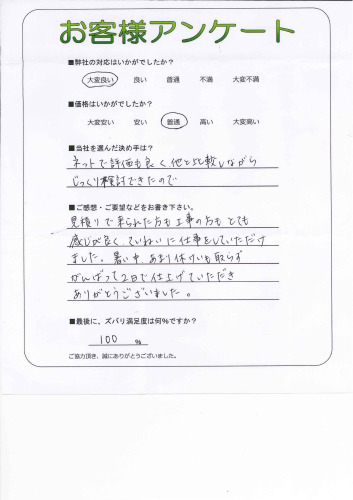 お客様アンケート
■弊社の対応はいかがでしたか？
大変良い　良い　普通　不満　大変不満
■価格はいかがでしたか？
大変安い　安い　普通　高い　大変高い
■当社を選んだ決め手は？
ネットで評価も良く、他と比較しながら
じっくり検討できたので
■ご感想・ご要望などをお書き下さい。
見積りで来られた方も工事の方もとても
感じが良く、ていねいに仕事をしていただけ
ました。暑い中、あまり休けいも取らず
がんばって2日で仕上げていただき
ありがとうございました。
■最後に、ズバリ満足度は何%ですか？
100 %
ご協力頂き、誠にありがとうございました。